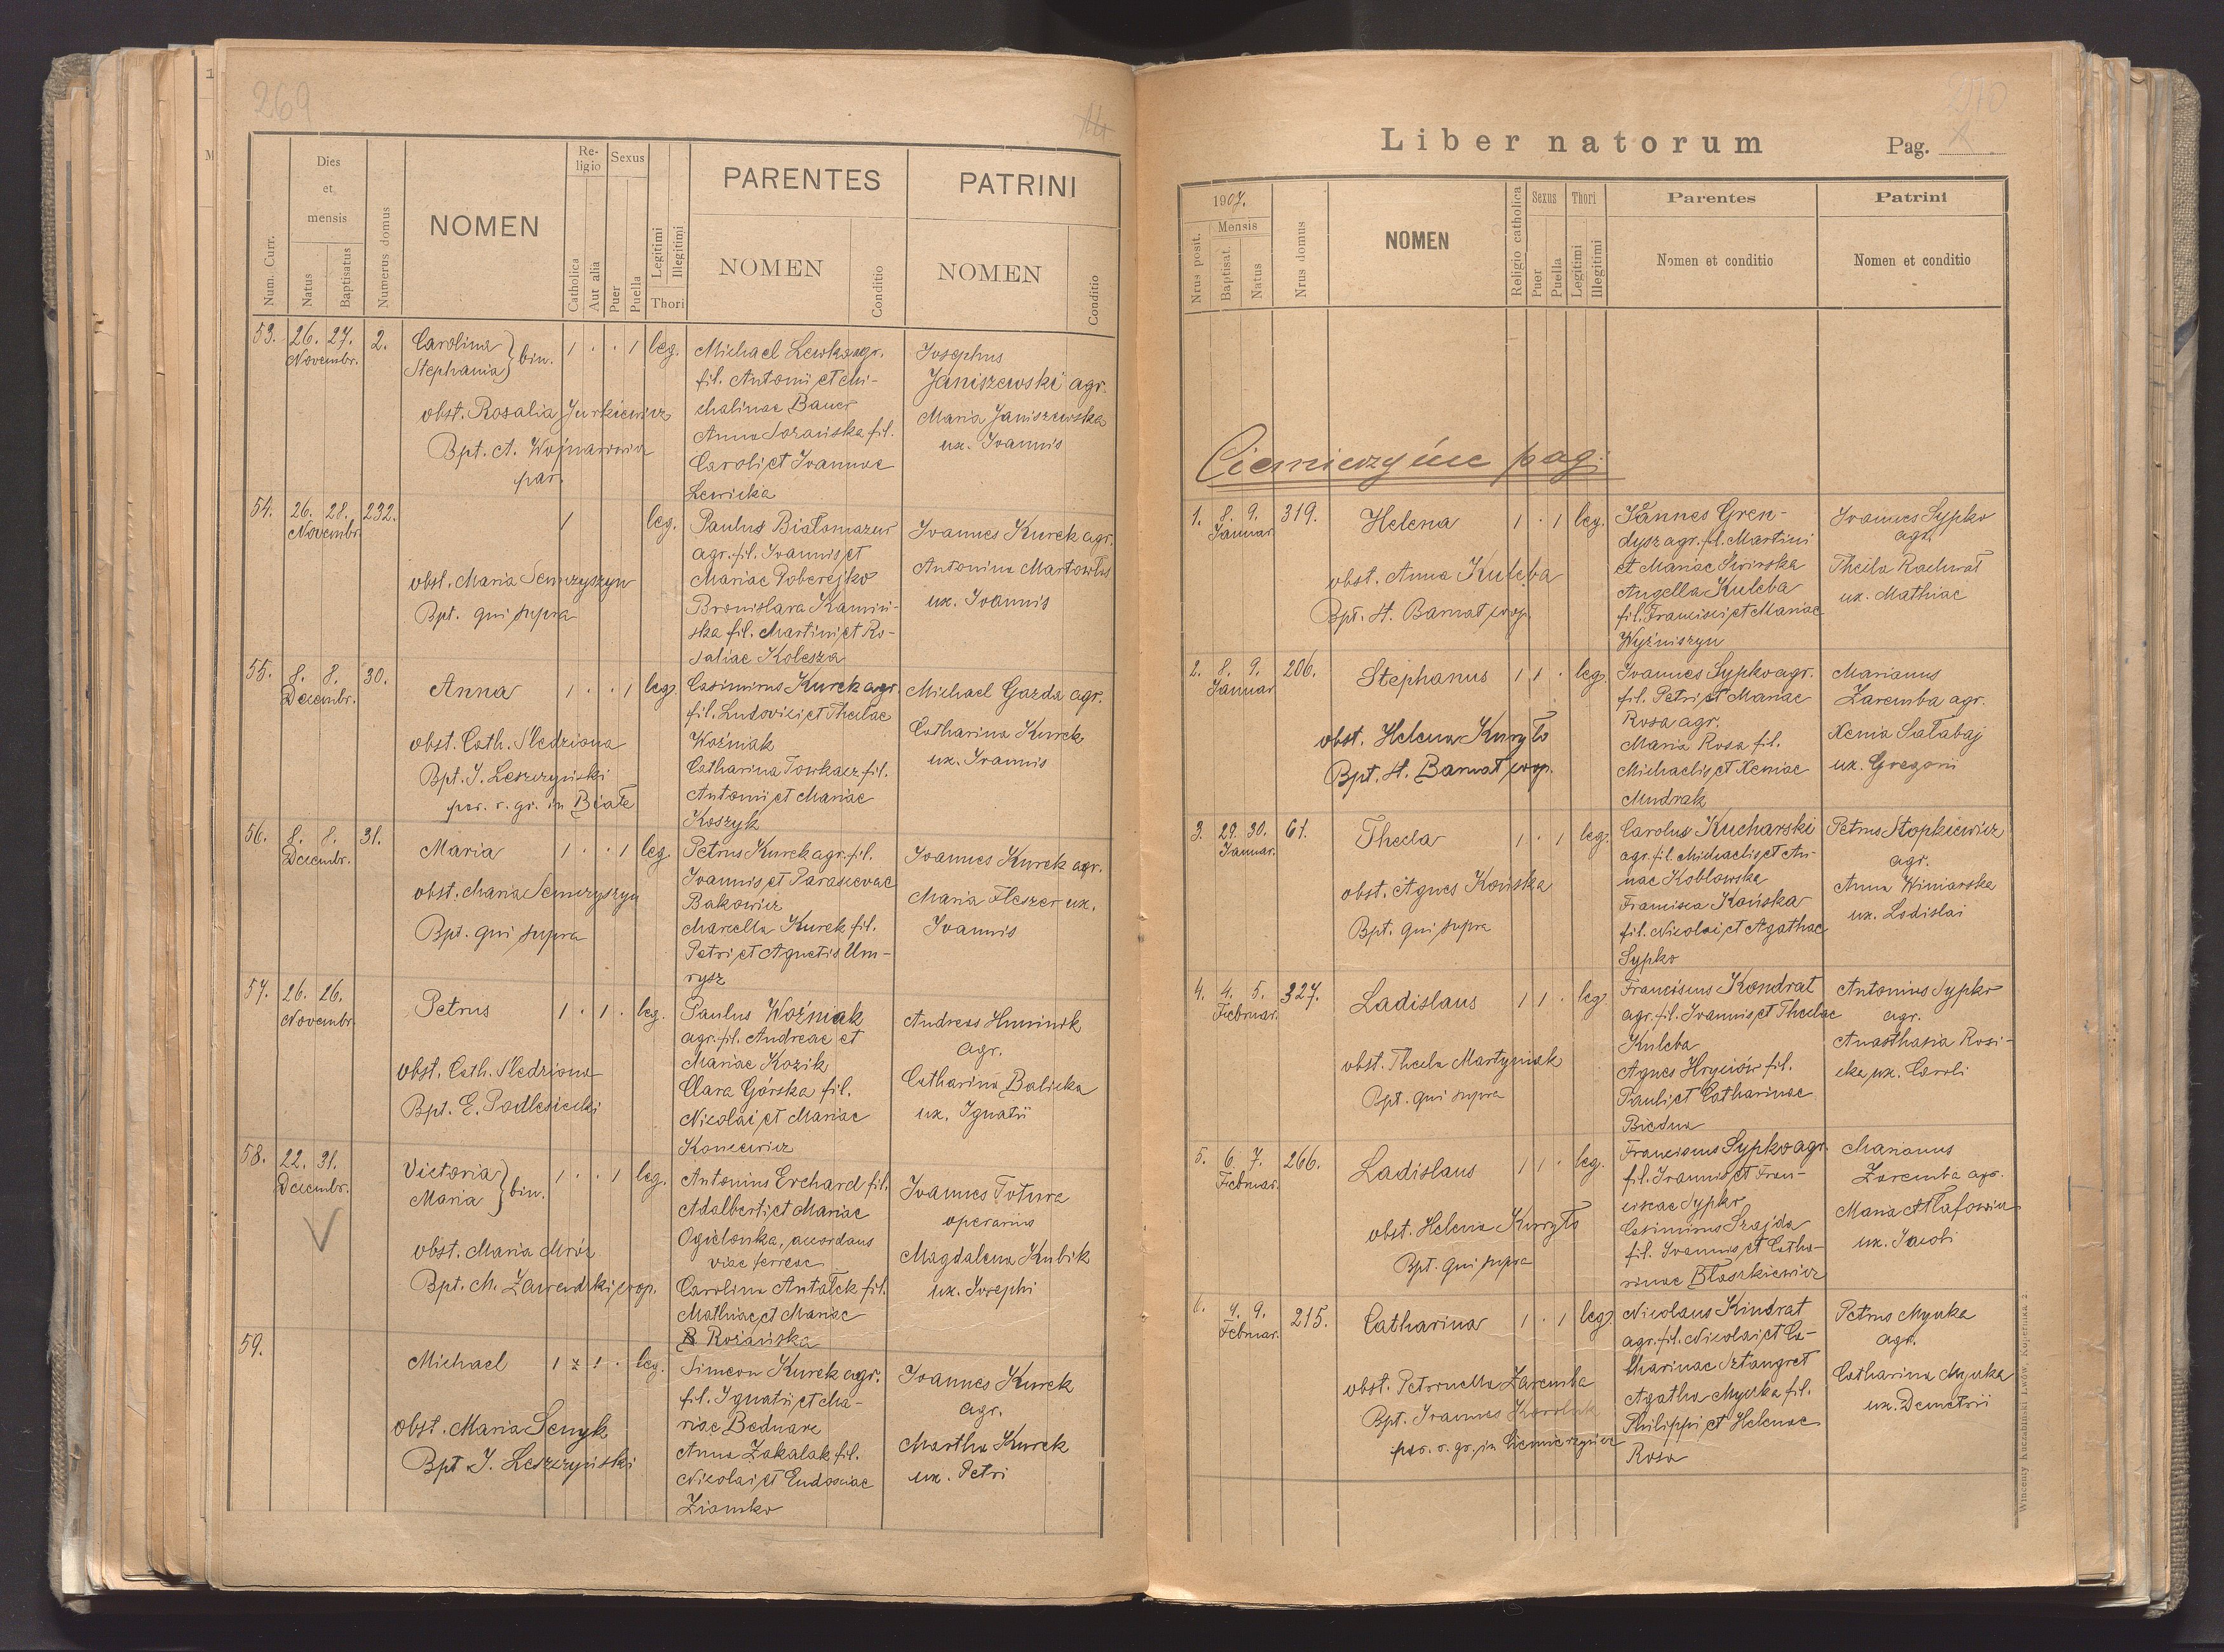 269
Num. Curr.
Dies et mensis
Natus
Baptisatus
Numerus domus
NOMEN
Religio
Catholica
Aut alia
Sexus
Puer
Puella
Legitimi
Illegitimi
Thori
PARENTES
NOMEN
Conditio
PATRINI
NOMEN
Conditio
53. 26. 27. Novembr. 2.
Carolina
Stephania } bin.
1 . . 1 leg.
obst. Rosalia Jurkiewicz
Bpt. A. Wojnarowicz
par.
Michael Lewko agr.
fil. Antonii et Mi-
chalinae Bauer
Anna fil.
Caroli et Joannae
Lewicka
Josephus
Janiszewski agr.
Maria Janiszewska
ux. Joannis
54. 26. 28. Novembr. 232.
1 leg.
obst. Maria Semczyszyn
Bpt. qui supra
Paulus Białomazur
agr. fil. Joannis et
Mariae Poberejko
Bronislava Kamiń-
ska fil. Martini et Ro-
saliae Kolesza
Joannes Kurek agr.
Antonina
ux. Joannis
55. 8. 8. Decembr. 30.
Anna
1 . . 1 leg.
obst. Cath. Śledziona
Bpt. J. Leszczyński
par. r. gr. in Białe
Casimirus Kurek agr.
fil. Ludovici et Theclae
Woźniak
Catharina Towkacz fil.
Antonii et Mariae
Koszyk
Michael Gazda agr.
Catharina Kurek
ux. Joannis
56. 8. 8. Decembr. 31.
Maria
1 . . 1 leg.
obst. Maria Semczyszyn
Bpt. qui supra
Petrus Kurek agr. fil.
Joannis et Parascevae
Bakowicz
Marcella Kurek fil.
Petri et Agnetis Um-
rysz
Joannes Kurek agr.
Maria Fleszer ux.
Joannis
57. 26. 26. Novembr.
Petrus
1 . 1 . leg.
obst. Cath. Śledziona
Bpt. E. Podlesiecki
Paulus Woźniak
agr. fil. Andreae et
Mariae Kozik
Clara Górska fil.
Nicolai et Mariae
Koncewicz
Andreas Huminik
agr.
Catharina Balicka
ux. Ignatii
58. 22. 31. Decembr.
Victoria
Maria } bin.
1 . . 1 leg.
obst. Maria Mróz
Bpt. M. Zawadzki coop.
Antonius Erchard fil.
Adalberti et Mariae
Ogielonka, accordans
viae ferreae
Carolina Antałek fil.
Mathiae et Mariae
Rożańska
Joannes Totura
operarius
Magdalena Kubik
ux. Josephi
59.
Michael
1 . 1 . leg.
obst. Maria Senyk
Bpt. J. Leszczyński
Simeon Kurek agr.
fil. Ignatii et Ma-
riae Bednarz
Anna Zakalak fil.
Nicolai et Eudosiae
Ziomko
Joannes Kurek
agr.
Martha Kurek
ux. Petri
270
Liber natorum
Pag.
1907.
Nrus posit.
Mensis
Baptisat.
Natus
Nrus domus
NOMEN
Religio catholica
Sexus
Puer
Puella
Thori
Legitimi
Illegitimi
Parentes
Nomen et conditio
Patrini
Nomen et conditio
Ciemierzyńce pag.
1. 8. 9. Januar. 319.
Helena
1 . 1 leg.
obst. Anna Kuleba
Bpt. H. Barnat coop.
Joannes Gren-
dysz agr. fil. Martini
et Mariae Świrska
Angella Kuleba
fil. Francisci et Mariae
Wyżniszyn
Joannes Sypko
agr.
Thecla Rachwał
ux. Mathiae
2. 8. 9. Januar. 206.
Stephanus
1 1 . leg.
obst. Helena Kuryło
Bpt. H. Barnat coop.
Joannes Sypko agr.
fil. Petri et Mariae
Rosa agr.
Maria Rosa fil.
Michaelis et Xeniae
Mudrak
Marianus
Zaremba agr.
Xenia Sałabaj
ux. Gregorii
3. 29. 30. Januar. 61.
Thecla
1 . 1 leg.
obst. Agnes Końska
Bpt. qui supra
Carolus Kucharski
agr. fil. Michaelis et An-
nae Kobłowska
Francisca Końska
fil. Nicolai et Agathae
Sypko
Petrus Stopkiewicz
agr.
Anna Winiarska
ux. Ladislai
4. 4. 5. Februar. 327.
Ladislaus
1 1 . leg.
obst. Thecla Martyniak
Bpt. qui supra
Franciscus Kondrat
agr. fil. Joannis et Theclae
Kuleba
Agnes Hryciów fil.
Pauli et Catharinae
Biedna
Antonius Sypko
agr.
Anasthasia Rosi-
cka ux. Caroli
5. 6. 7. Februar. 266.
Ladislaus
1 1 . leg.
obst. Helena Kuryło
Bpt. qui supra
Franciscus Sypko agr.
fil. Joannis et Fran-
ciscae Sypko
Casimira Szajda
fil. Joannis et Catha-
rinae Błaszkiewicz
Marianus
Zaremba agr.
Maria
ux. Jacobi
6. 4. 9. Februar. 215.
Catharina
1 . 1 leg.
obst. Petronella Zaremba
Bpt. Joannes
par. r. gr. in Ciemierzyńce
Nicolaus Kindrat
agr. fil. Nicolai et Ca-
tharinae Sztangret
Agatha Mycka fil.
Philippi et Helenae
Rosa
Petrus Mycka
agr.
Catharina Mycka
ux. Demetrii